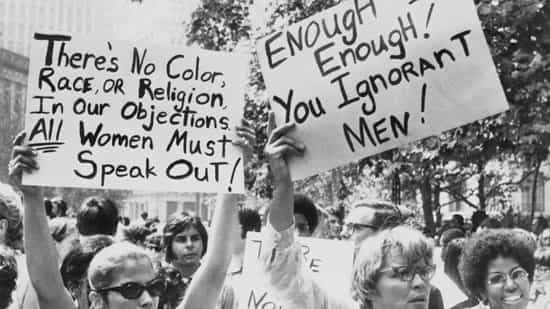 There's No Color,
Race, or Religion,
In Our Objections.
All Women Must
Speak Out!
Enough
Enough!
You Ignorant
Men!